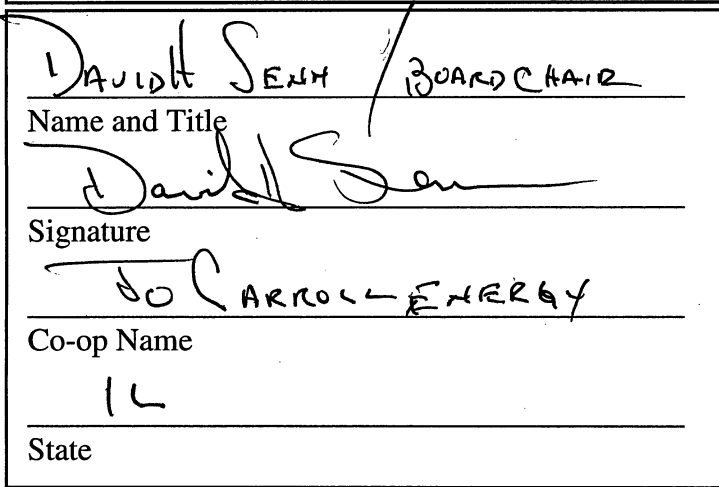 DAVID H SENN / BOARD CHAIR
Name and Title
David H Senn
Signature
JO CARROLL ENERGY
Co-op Name
IL
State